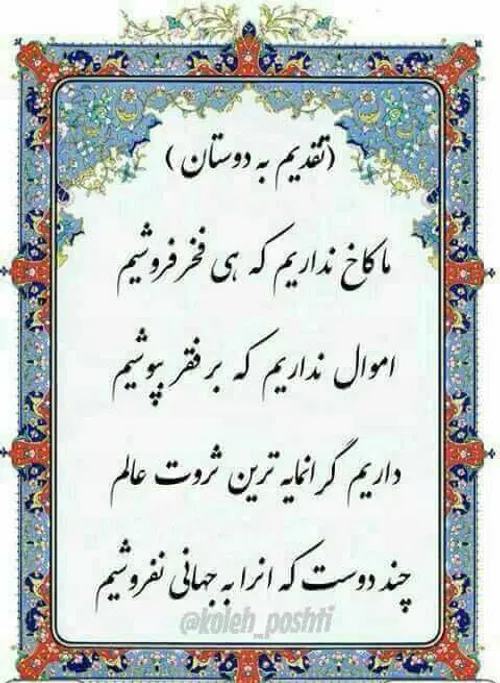 (تقدیم به دوستان)
ما کاخ نداریم که هی فخر فروشیم
اموال نداریم که بر فقر بپوشیم
داریم گرانمایه ترین ثروت عالم
چند دوست که انرا به جهانی نفروشیم
@koleh_poshti